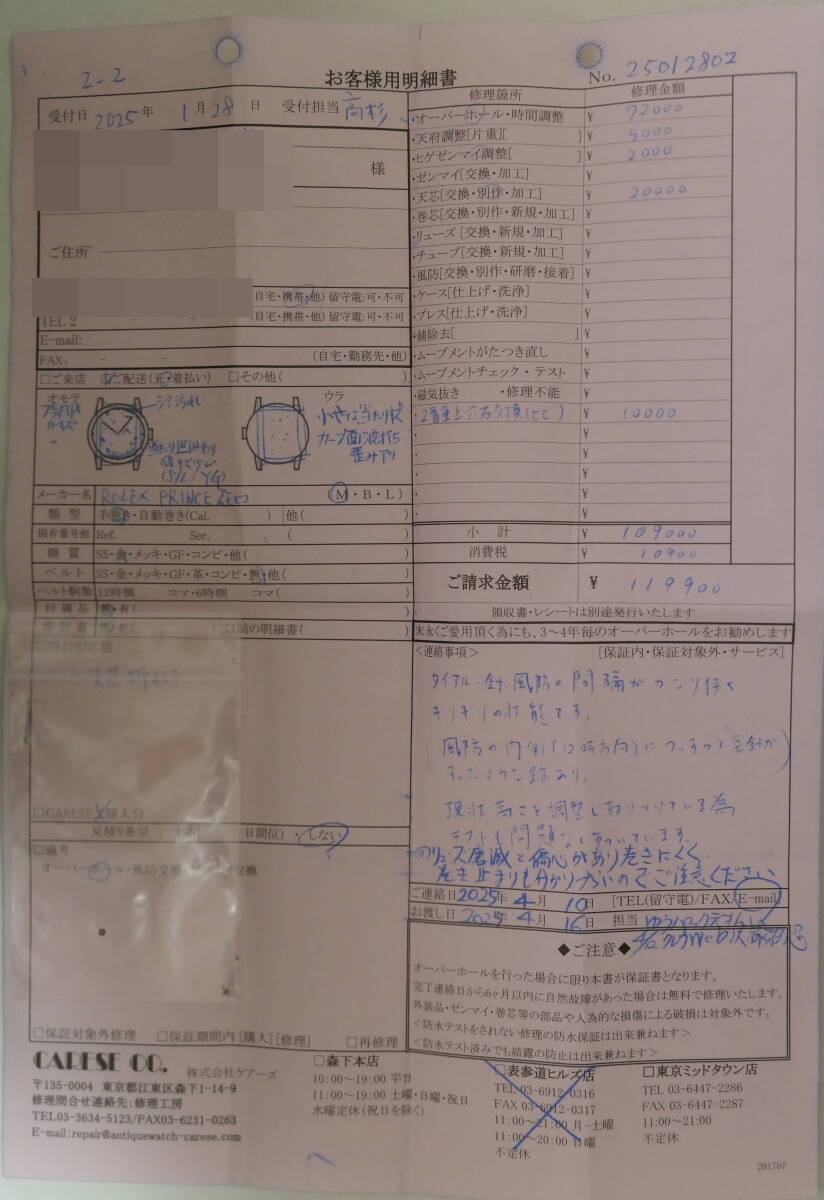 2-2
お客様用明細書
No. 25012802
受付日 2025年 1月28日 受付担当 高杉
様
ご住所
(自宅・携帯・他) 留守電:可・不可
TEL 2 － － (自宅・携帯・他) 留守電:可・不可
E-mail:
FAX. － － (自宅・勤務先・他)
□ご来店 ご配送(元・着払い) □その他( )
オモテ
ウラ
シミ汚れ
小キズ当たり状
カーブ面波打ち
歪みアリ
メーカー名 ROLEX PRINCE (M・B・L)
類型 手巻き・自動巻き(Cal. ) 他( )
固有番号他 Ref. Ser. ( )
側質 SS・金・メッキ・GF・コンビ・他( )
ベルト SS・金・メッキ・GF・革・コンビ・無・他( )
ベルト駒数 12時側 コマ・6時側 コマ( )
付属品 無・有( )
無・有( ) 以前の明細書( )
□時計の状態
□CARESE購入分
見積り希望 する( 日間位)・しない
□備考
オーバーホール・風防交換・ 交換
□保証対象外修理 □保証期間内 [購入] [修理] □再修理
修理箇所 修理金額
・オーバーホール・時間調整 ¥ 72000
・天府調整[片重][ ] ¥ 5000
・ヒゲゼンマイ調整[ ] ¥ 2000
・ゼンマイ[交換・加工] ¥
・天芯[交換・別作・加工] ¥ 20000
・巻芯[交換・別作・新規・加工] ¥
・リューズ[交換・新規・加工] ¥
・チューブ[交換・新規・加工] ¥
・風防[交換・別作・研磨・接着] ¥
・ケース[仕上げ・洗浄] ¥
・ブレス[仕上げ・洗浄] ¥
・錆除去[ ] ¥
・ムーブメントがたつき直し ¥
・ムーブメントチェック・テスト ¥
・磁気抜き ・修理不能 ¥
・2番車上穴石交換 ¥ 10000
・ ¥
・ ¥
・ ¥
・ ¥
・ ¥
小計 ¥ 109000
消費税 ¥ 10900
ご請求金額 ¥ 119900
領収書・レシートは別途発行いたします
末永くご愛用頂く為にも、3〜4年毎のオーバーホールをお勧めします
<連絡事項> [保証内・保証対象外・サービス]
ダイアル・針・風防の間隔がかなり狭く
ギリギリの状態です。
(風防の内側(12時方向)にうっすらと針が
すったような跡あり。)
現状高さを調整し取りつけている為
テストも問題なくすんでいます。
リューズ磨減と偏心があり巻きにくく
巻き止まりも分かりづらいのでご注意ください
ご連絡日 2025年 4月 10日 [TEL(留守電)/FAX/E-mail]
お渡し日 2025年 4月 16日 担当
◆ご注意◆
オーバーホールを行った場合に限り本書が保証書となります。
完了連絡日から6ヶ月以内に自然故障があった場合は無料で修理いたします。
外装品・ゼンマイ・巻芯等の部品や人為的な損傷による破損は対象外です。
<防水テストをされない修理の防水保証は出来兼ねます>
<防水テスト済みでも結露の防止は出来兼ねます>
CARESE CO. 株式会社ケアーズ
〒135-0004 東京都江東区森下1-14-9
修理問合せ連絡先:修理工房
TEL03-3634-5123/FAX03-6231-0263
E-mail:repair@antiquewatch-carese.com
□森下本店
10:00〜19:00 平日
11:00〜19:00 土曜・日曜・祝日
水曜定休(祝日を除く)
□表参道ヒルズ店
TEL 03-6912-0316
FAX 03-6912-0317
11:00〜21:00 月–土曜
11:00〜20:00 日曜
不定休
□東京ミッドタウン店
TEL 03-6447-2286
FAX 03-6447-2287
11:00〜21:00
不定休
201707